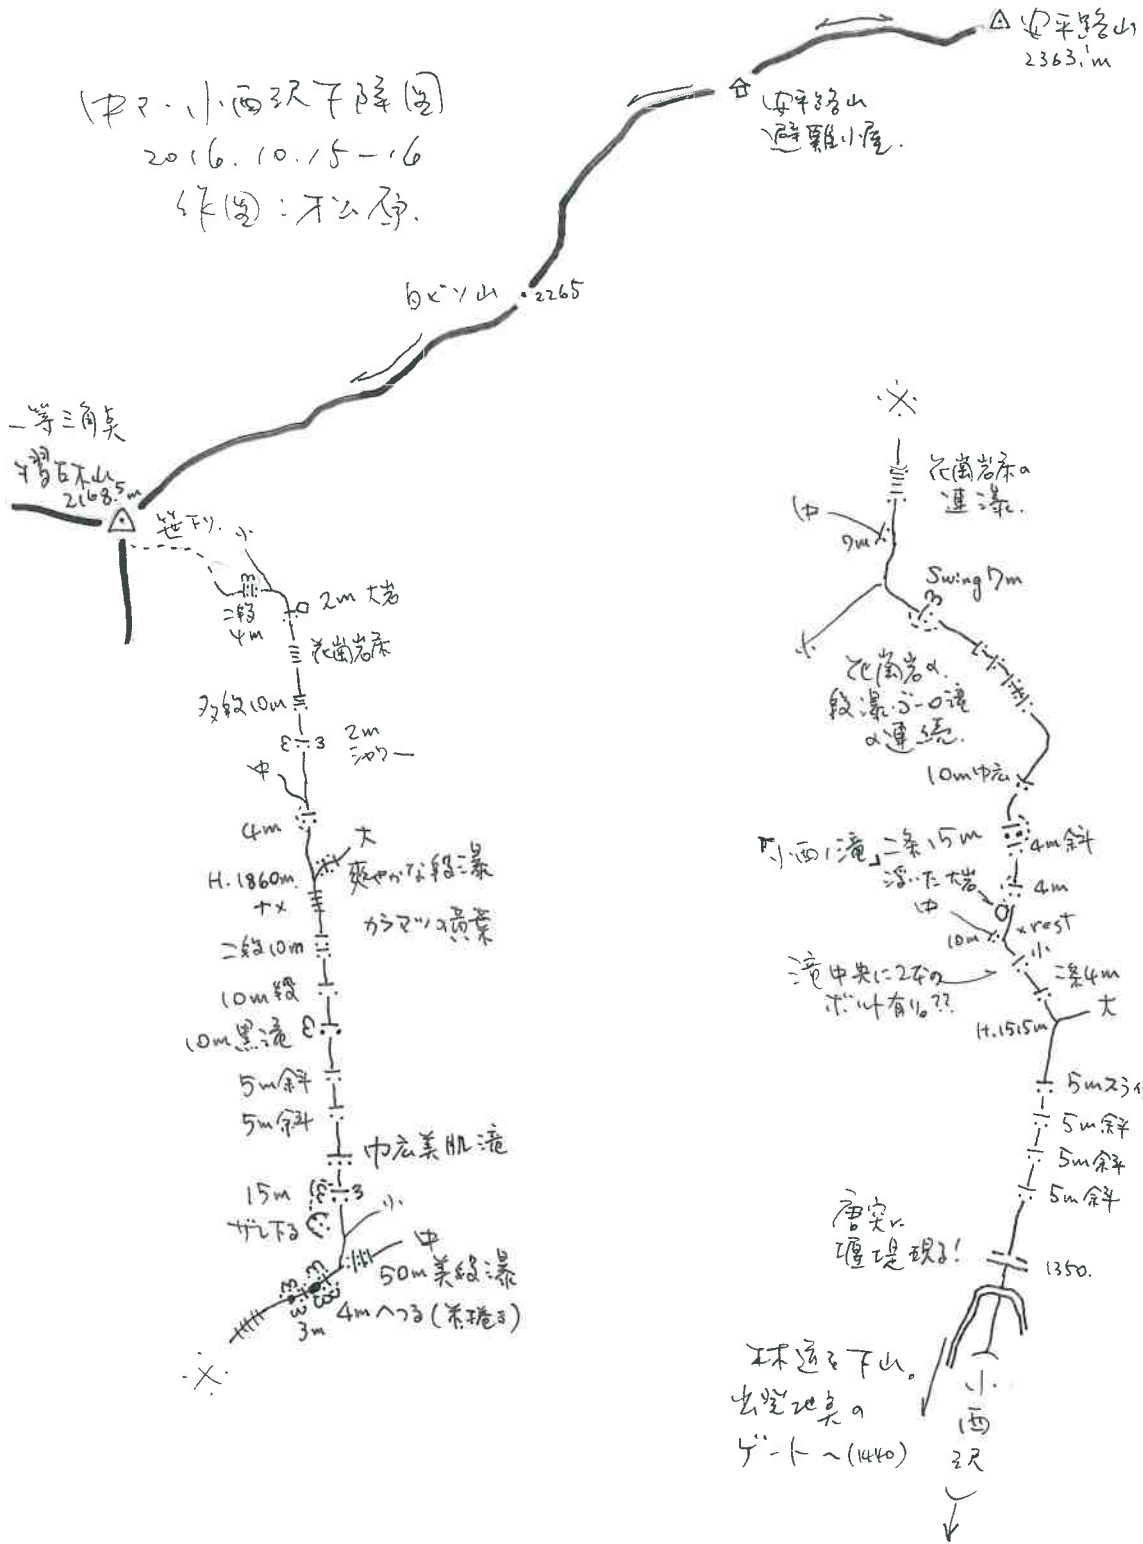 中ア・小西沢下降図
2016.10.15-16
作図:松原.
安平路山
2363.1m
安平路山
避難小屋.
白ビソ山
・2265
一等三角点
摺古木山
2168.5m
笹下り.
小
二段
4m
2m 大岩
花崗岩床
多段10m
2m
シャワー
中
4m
大
爽やかな段瀑
H.1860m.
ナメ
カラマツの黄葉
二段10m
10m段
10m黒滝
5m斜
5m斜
巾広美肌滝
15m
ザレ下る
小
中
50m美段瀑
4mへつる(茶巻き)
3m
※
※
花崗岩床の
連瀑.
中
7m
Swing 7m
大
花崗岩の
段瀑・ゴーロ滝
の連続.
10m巾広
「小西ノ滝」二条15m
4m斜
浮いた大岩
4m
中
10m
×rest
小
滝中央に2本の
ボルト有り。??
二条4m
大
H.1515m
5mスライ
5m斜
5m斜
5m斜
唐突に
堰堤現る!
1350.
林道を下山。
出発地点の
ゲートへ(1440)
小
西
沢